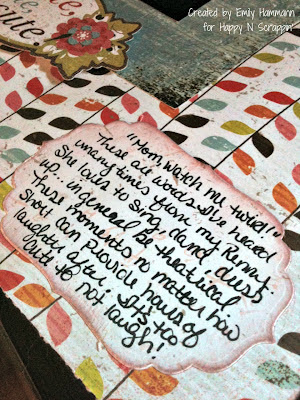 Created by Emily Hammann
for Happy N Scrappin'
cute.
"Mom, watch me twirl!"
These are words I've heard
many times from my Remmi.
She loves to sing, dance, dress
up, in general be theatrical
These moments no matter how
short can provide hours of
laughter after. It's too
cute to not laugh!